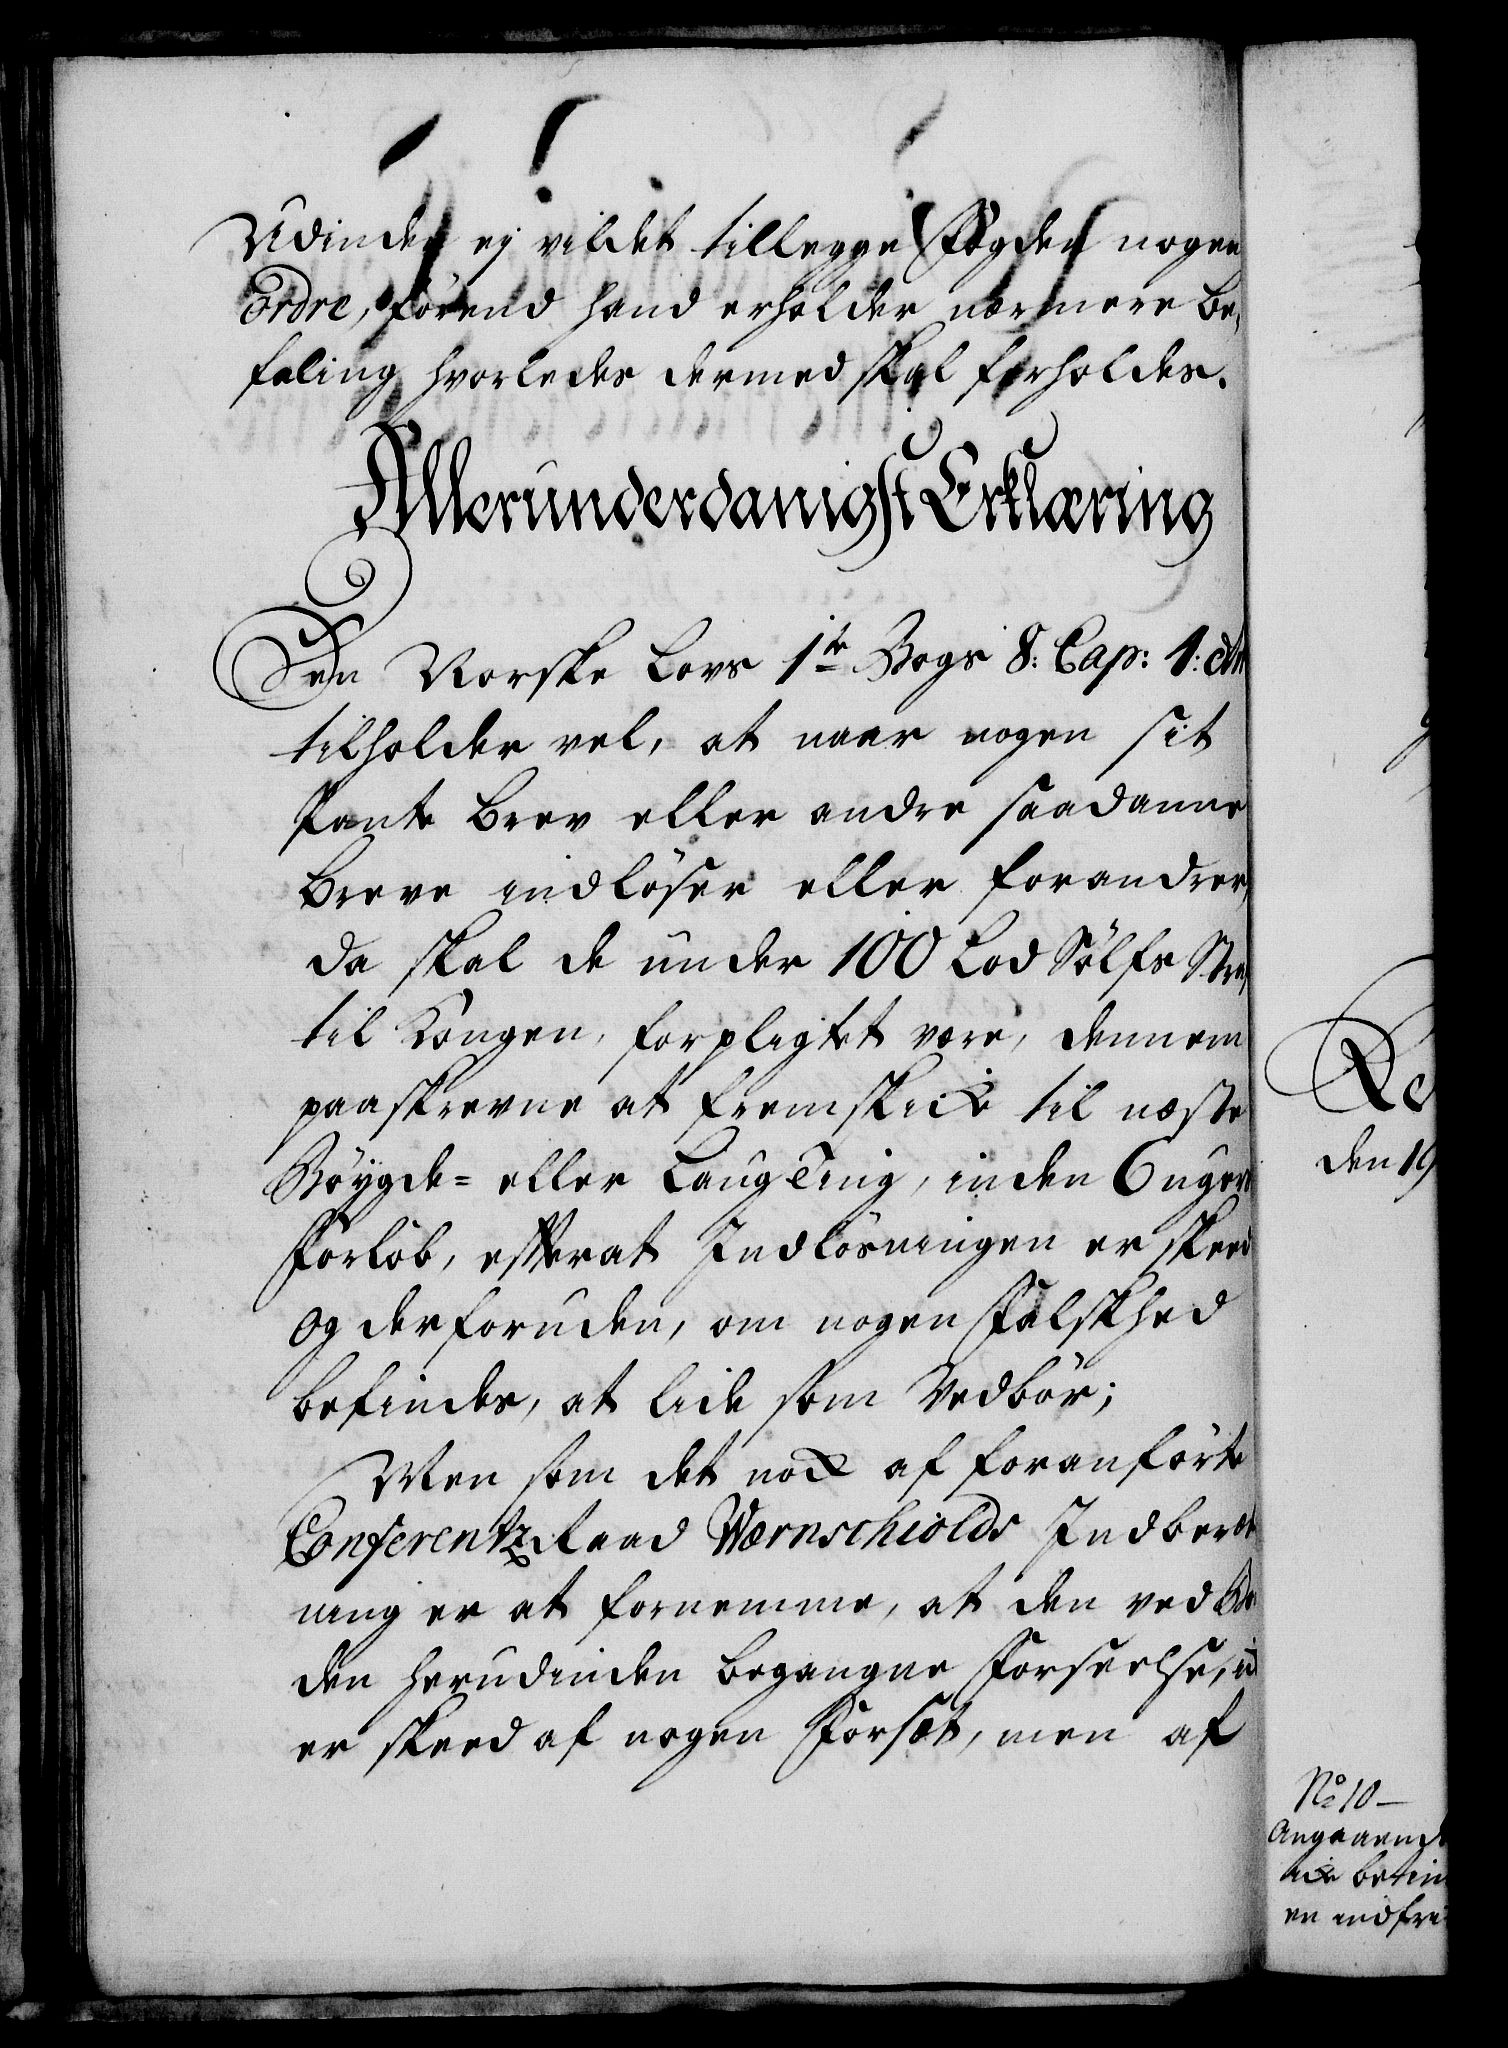 Udinden ej vildet tillegge Fogden nogen
Ordre, förend hand erholder nærmere be,
faling hvorledes dermed skal forholdes.
Allerunderdanigst Erklæring
Den Norske Lovs 1te Bogs 8: Cap: 1:
tilholder vel, at naar nogen sit
Pante Brev eller andre saadanne
Breve indlöser eller forandrer,
da skal de under 100 Lod Sölfs
til Kongen, forpligtet være, dennem
paaskrevne at fremskicke til næste
Böygde= eller LaugTing, inden 6 ugers
Forlöb, efterat Indlösningen er skeed
og derforuden, om nogen Falskhed
befindes, at lide som Vedbör;
Men som det nock af foranförte
Conferentz Raad Wærnschiolds Indberet
ning er at fornemme, at den ved
den herudinden begangne Forseelse,
er skeed af nogen Forsæt, men af
den 19
No 10 -
Angaaende